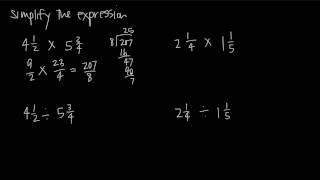 Simplify the expression
4 1/2 × 5 3/4
9/2 × 23/4 = 207/8
25
8 207
16
47
40
7
2 1/4 × 1 1/5
4 1/2 ÷ 5 3/4
2 1/4 ÷ 1 1/5